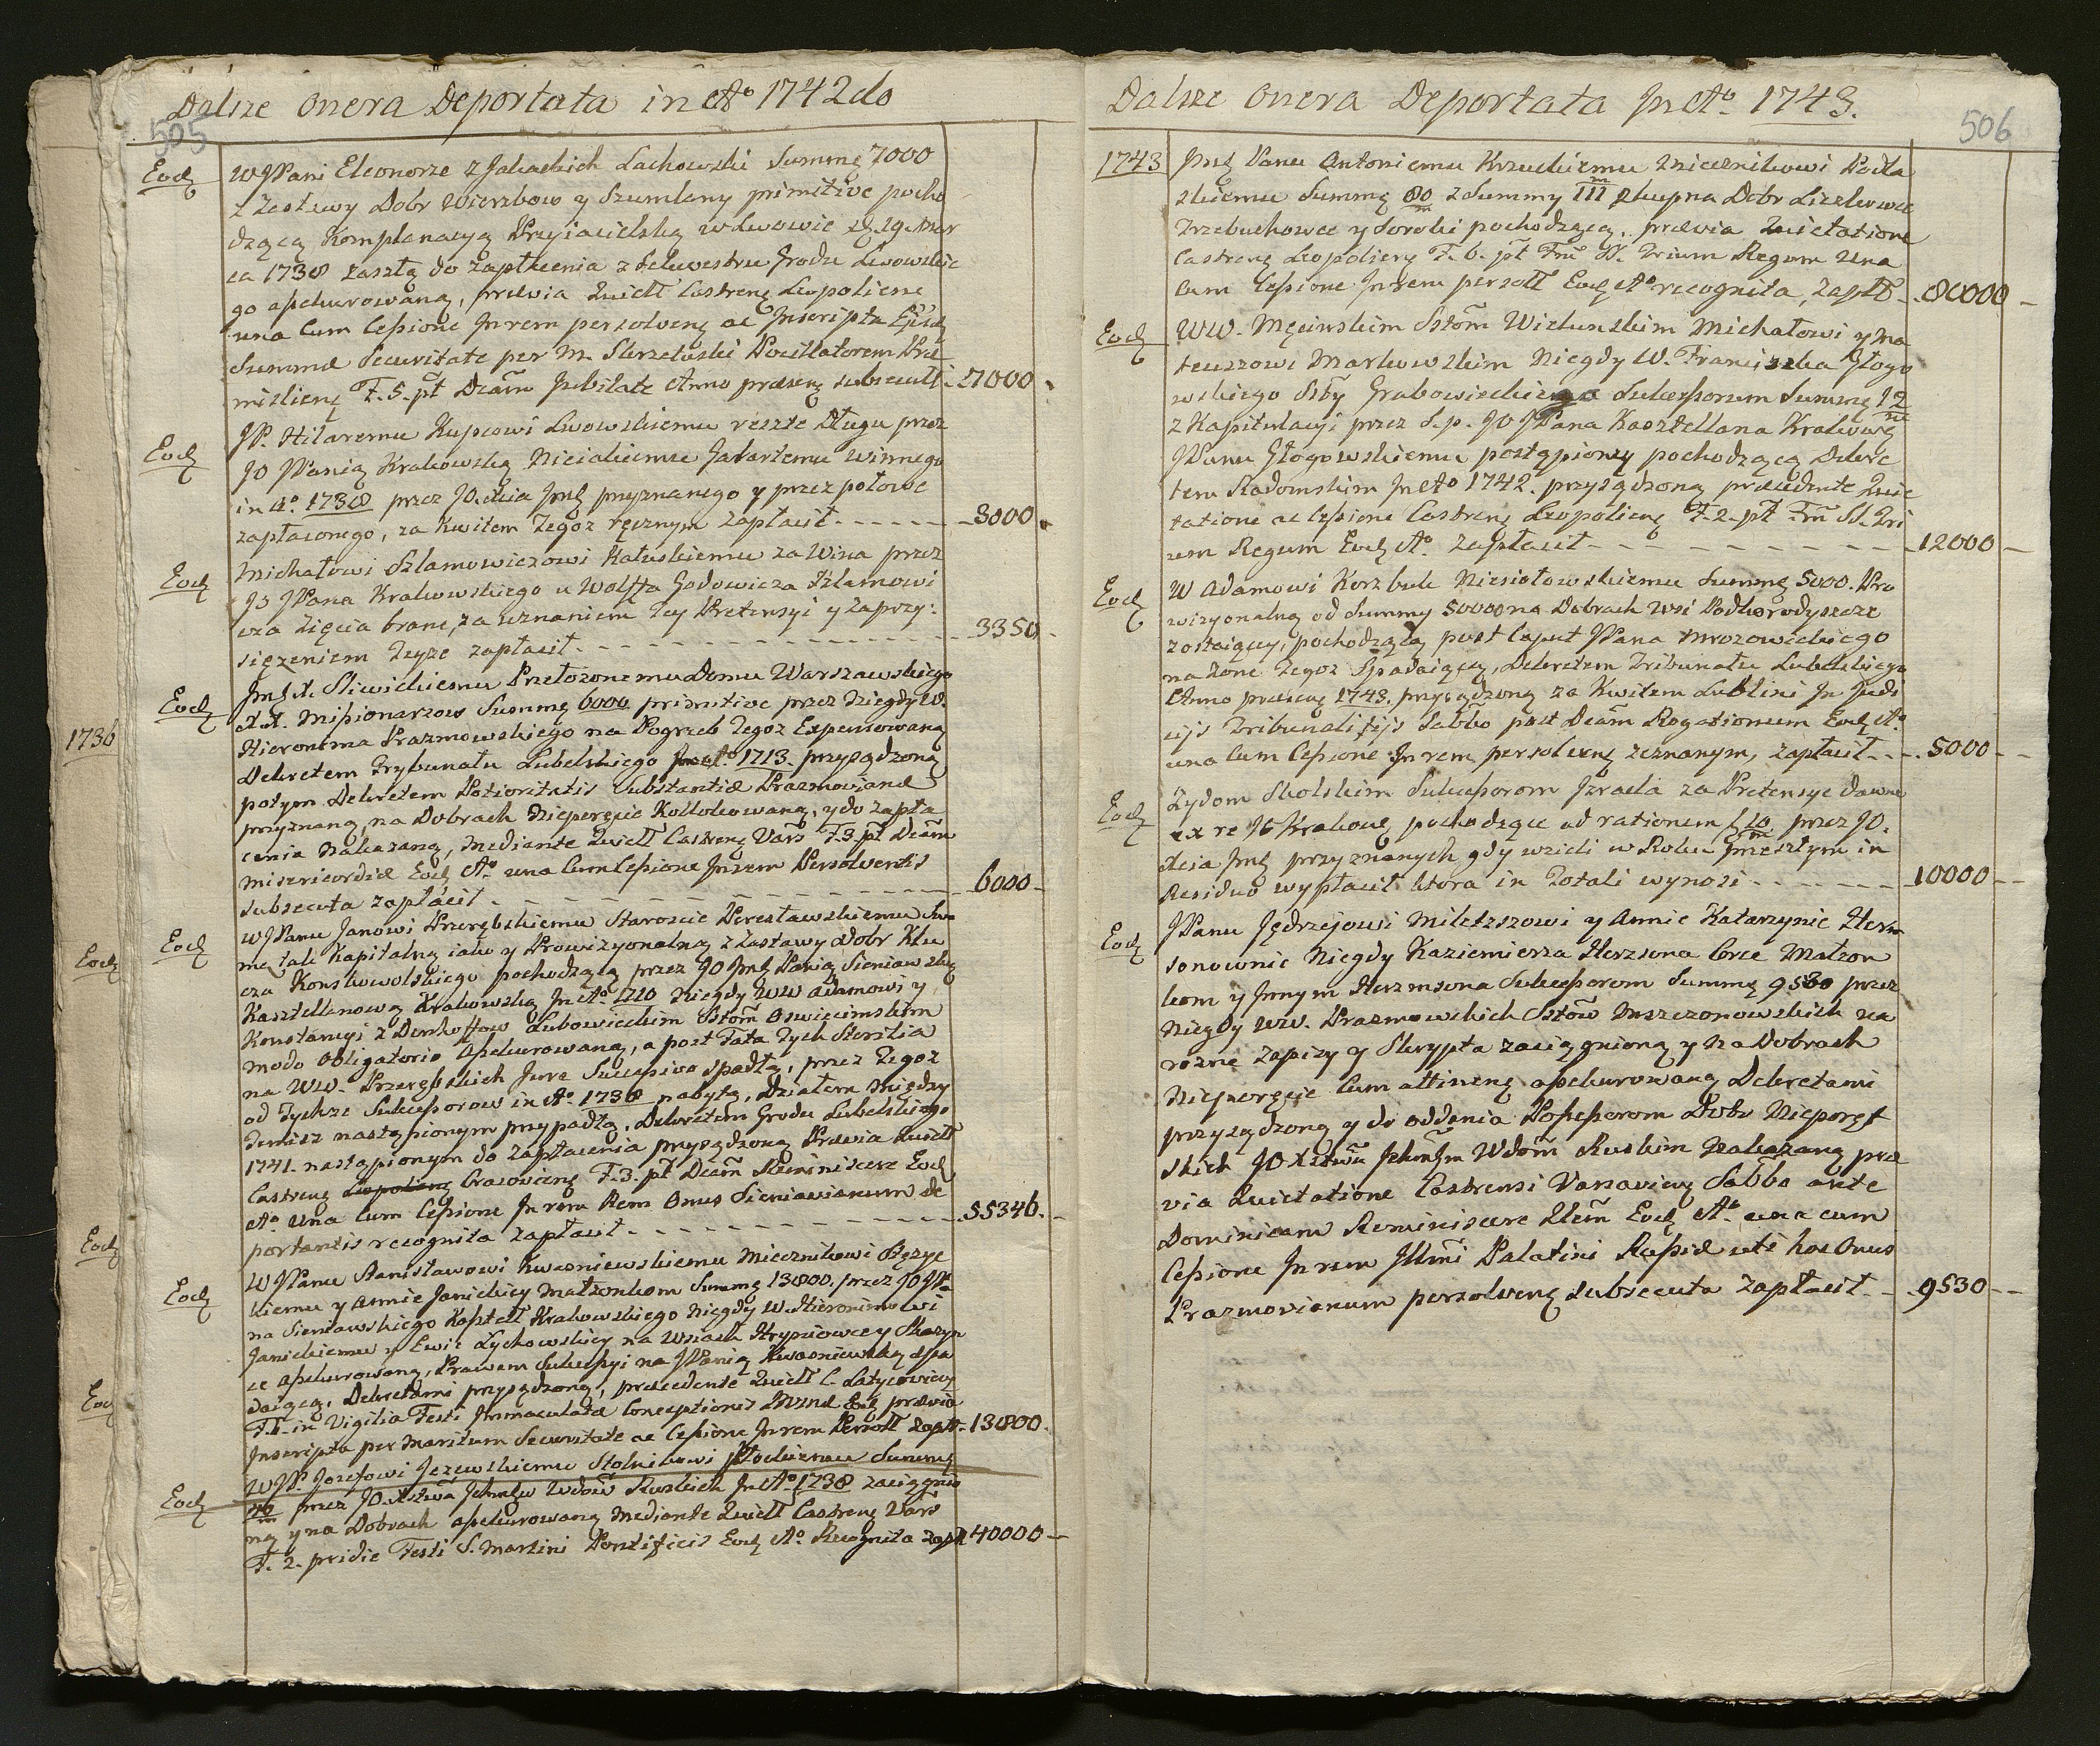 Dalsze onera Deportata in Aº 1742do
505
Eod WJPani Eleonorze z Lachowski Summę 7000
z Zastawy Dobr Wierzbow y Szumlany primitive pocho
dzącą Komplanacyą Przyiacielską w Lwowie d. 29. Mar
ca 1738 zaszłą do zapłacenia z Sekwestru Grodu Lwowskie
go assekurowaną, prævia Quiett Castren Leopoliens
una Cum Cessione Jn rem persolven ac Jnscripta Ejusd
Summæ Securitate per M. Skrzetuski Pocillatorem Præ
mislien F. 5. pt Dcam Jubilate Anno præsen subsecuti - 7000.
Eod JP. Hilaremu Kupcowi Lwowskiemu resztę Długu przez
JO JPanią Krakowską Nieiakiemu Gabartemu winnego
in Aº 1738 przez JO. Xcia Jmś przyznanego y przez połowę
zapłaconego, za Kwitem Tegoż ręcznym zapłacił - - - - - 3000.
Eod Michałowi Szlamowiczowi Kałuskiemu za Wina przez
JO JPana Krakowskiego u Wolffa Godowicza Szlamowi
cza Zięcia brane, za uznaniem Tey Pretensyi y Zaprzy:
siężeniem Teyże zapłacił - - - - - - - - - - 3350.
Eod Jmś X. Sliwickiemu Przełożonemu Domu Warszawskiego
XX. Missionarzow Summę 6000 primitive przez Niegdy W.
1736 Hieronima Prazmowskiego na Pogrzeb Tegoż Expensowaną
Dekretem Trybunału Lubelskiego Jn Aº 1713. przysądzoną
potym Dekretem Potioritatis Substantiæ Prazmovianæ
przyznaną, na Dobrach Nieporęcie Kollokowaną, y do zapła
cenia nakazaną, mediante Quiett Castren Vars F. 3. pt Dcam
Misericordiæ Eod Aº una Cum Cessione Jn rem Persolventis
subsecuta zapłacił - - - - - - - - - - 6000 -
Eod Eod WJPanu Janowi Przerębskiemu Staroscie Peresławskiemu Su
mę tak Kapitalną iako y Prowizyonalną z Zastawy Dobr Klu
cza Konskowolskiego pochodzącą przez JO Jmś Panią Sieniawską
Kasztellanową Krakowską Jn Aº 1710 Niegdy WW Adamowi y
Konstancyi z Denhoffow Lubowieckim Sstom Oswięcimskim
modo obligatorio Assekurowaną, a post Fata Tych Sterilia
na WW. Przerębskich Jure Successivo Spadłą, przez Tegoż
od Tychże Sukcessorow in Aº 1738 nabytą, działem między
Eod Temisz nastąpionym przypadłą, Dekretem Grodu Lubelskiego
1741. nastąpionym do Zapłacenia przysądzoną Prævia Quiett
Castren Leopolien Cracovien F. 3. pt Dcam Reminiscere Eod
Aº una Cum Cessione Jn rem Rem Onus Sieniavianum de
portantis recognita Zapłacił - - - - - - - - 55346.
Eod WJPanu Stanisławowi Kwasniewskiemu Miecznikowi Stęzyc
kiemu y Annie Janickiey Małżonkom Summę 13800. przez JO JPa
na Sieniawskiego Kasztell Krakowskiego Niegdy W. Hieronimowi
Janickiemu y Ewie Łychowskiey na Wsiach Hrynowce y Skarzyn
Eod ce assekurowaną, Prawem Sukcessyi na JPanią Kwasniewską spa
daiącą, Dekretami przysądzoną, præcedente Quiett C. Latycovien
F. 6. in Vigilia Festi Jmmaculatæ Conceptionis BVMæ Eod prævia
Jnscripta per Maritum Securitate ac Cessione Jn rem Persoll Zapł - 13800.
Eod WJP. Jozefowi Jezewskiemu Stolnikowi Płockiemu Summę
40/m przez JO. Xstwa Jchmściow Wdow Ruskich Jn Aº 1738 zaciągnio
ną y na Dobrach assekurowaną mediante Quiett Castren Vars
F. 2. pridie Festi S. Martini Pontificis Eod Aº Recognita Zapł 40000 -
Dalsze onera Deportata Jn Aº 1743.
506
1743 Jmś Panu Antoniemu Kruckiemu Miecznikowi Podla
skiemu Summę 80/m z Summy III/m Skupna Dobr Lieskowce
Trzebuchowce y Soroki pochodzącą, prævia Quietatione
Castren Leopolien F. 6. pt Fm SS. Trium Regum Una
Cum Cessione Jn rem persoll Eod Aº recognita, Zapłł - 80000 -
Eod WW. Męcinskim Sstom Wielunskim Michałowi y Ma
teuszowi Markowskim Niegdy W. Franciszka Głogo
wskiego Ssty Grabowieckiego Sukcessorum Summę 12/m
z Kapitulacyi przez S.p. JO JPana Kasztellana Krakow
JPanu Głogowskiemu postąpioney pochodzącą Dekre
tem Radomskim Jn Aº 1742. przysądzoną præcedente Quie
tatione ac Cessione Castren Leopolien F. 2. pt Fm SS. Tri
um Regum Eod Aº. zapłacił - - - - - - - - 12000 -
Eod W Adamowi Korzbuk Niesiołowskiemu Summę 5000. Pro
wizyonalną od Summy 50000 na Dobrach Wsi Podhorodyszcze
zostaiącey, pochodzącą post Caput JPana Mrozowickiego
na Zonę Tegoż Spadaiącey, Dekretem Tribunału Lubelskiego
Anno præsen 1743. przysądzoną za Kwitem Lublini Jn Judi
cijs Tribunalitijs Sabbo post Dcam Rogationum Eod Aº
una Cum Cessione Jn rem persolven zeznanym, zapłacił - - 5000 -
Eod Zydom Skolskim Sukcessorom Jzraela za Pretensye dawne
ex re JO Krakows pochodzące ad rationem f 10/m przez JO.
Xcia Jmś przyznanych gdy wzieli w Roku Przeszłym in
Residuo wypłacił ktora in Totali wynosi - - - - - 10000 -
Eod JPanu Jędrzejowi Miletzszowi y Annie Katarzynie Herm
sonownie Niegdy Kaziemierza Herzsona Corce Małzon
kom y Jnnym Herzmsona Sukcessorom Summę 9530 przez
Niegdy WW. Prazmowskich Sstow Mszczonowskich na
rozne zapisy y Skrypta zaciągnioną y na Dobrach
Nieporęcie Cum attinen assekurowaną Dekretami
przysądzoną y do oddania Possessorom Dobr Nieporęt
skich JO Xstwu Jchmściom Wdom Ruskim Nakazaną præ
via Quietatione Castrensi Varsavien Sabbo ante
Dominicam Reminiscere Eod Aº una cum
Cessione Jn rem Jllmi Palatini Russiæ uti hoc Onus
Prazmovianum persolven subsecuta zapłacił - - 9530 - -